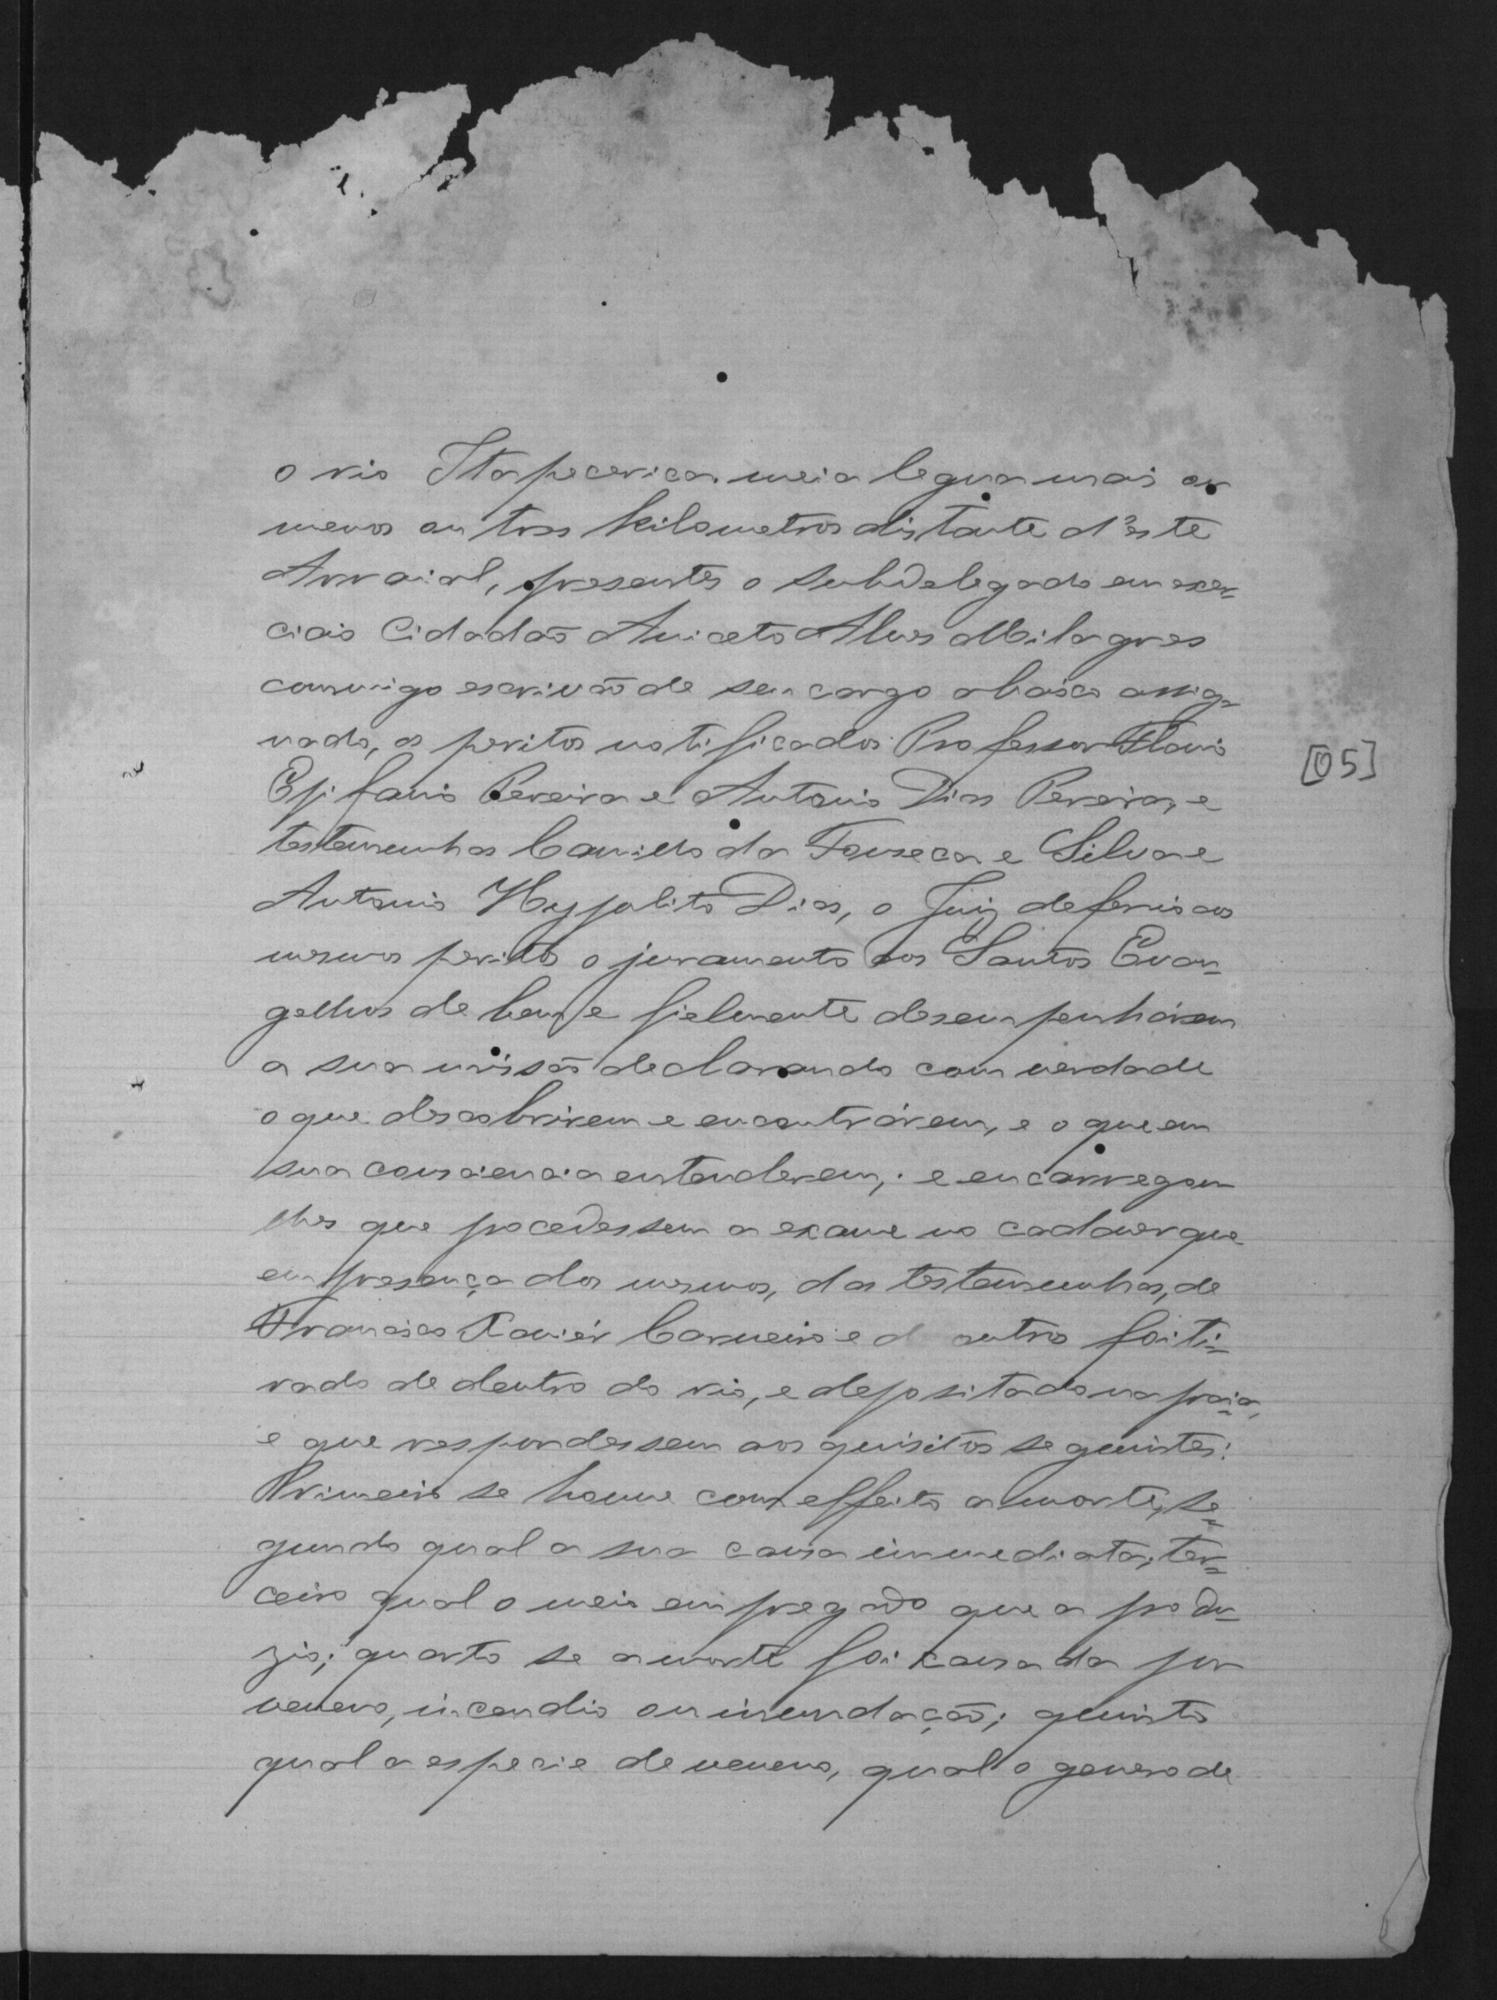 o rio Itapecerica meia legua mais ou
menos ou tres kilometros distante d'este
Arraial, presentes o Subdelegado em exer-
cicio Cidadão Aniceto Alves Milagres
commigo escrivão de seu cargo abaixo assig-
nado, os peritos notificados Professor Flavio
Epifanio Pereira e Antonio Dias Pereira, e
testemunhas Camillo da Fonseca e Silva e
Antonio Hyppolito Dias, o Juiz deferio aos
mesmos peritos o juramento aos Santos Evan-
gelhos de bem e fielmente desempenhárem
a sua missão declarando com verdade
o que descobrirem e encontrárem, e o que em
sua consciencia entenderem; e encarregou
lhes que procedessem a exame no cadaver que
em presença dos mesmos, das testemunhas, de
Francisco Xavier Carneiro e d outros foi ti-
rado de dentro do rio, e depositado na praia,
e que respondessem aos quisitos seguintes:
Primeiro se houve com effeito a morte, se-
gundo qual a sua causa immediata; ter-
ceiro qual o meio empregado que a produ-
zio; quarto se a morte foi causada por
veneno, incendio ou inundação; quinto
qual a especie de veneno, qual o genero de
[05]